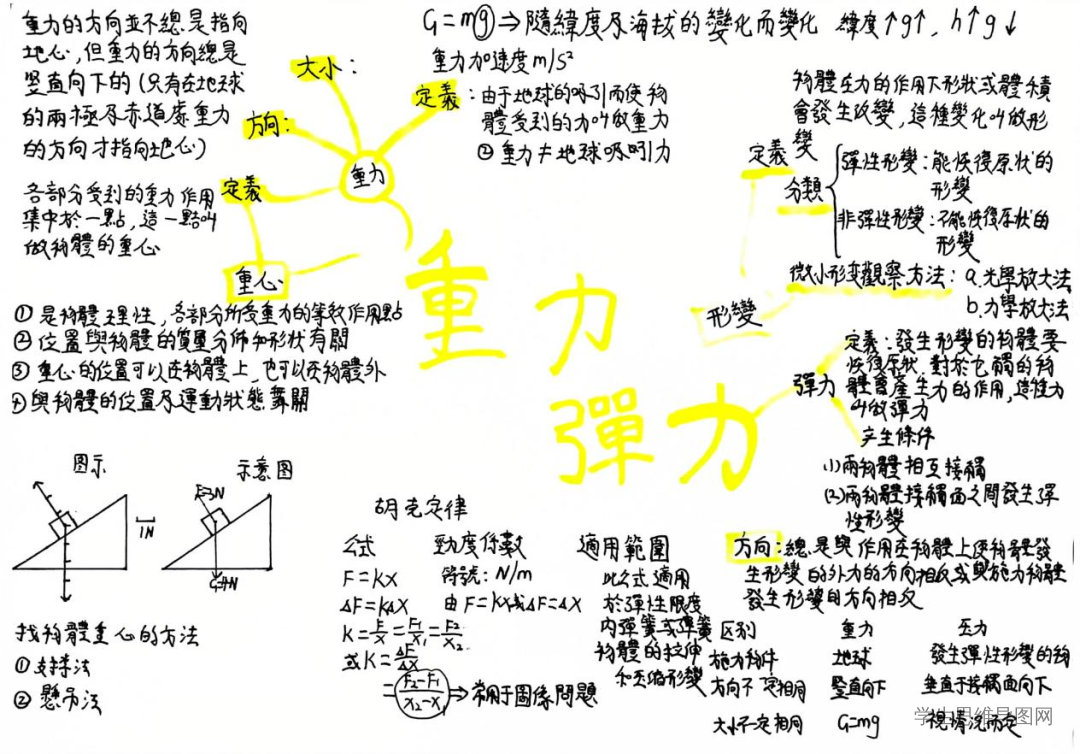 重力的方向並不總是指向
地心,但重力的方向總是
豎直向下的(只有在地球
的兩極及赤道處重力
的方向才指向地心)
大小:
G=mg⇒隨緯度及海拔的變化而變化 緯度↑g↑, h↑g↓
重力加速度m/s²
方向:
定義:由于地球的吸引而使物
體受到的力叫做重力
②重力≠地球吸引力
重力
各部分受到的重力作用
集中於一點,這一點叫
做物體的重心
定義
重心
①是物體理性,各部分所受重力的等效作用點
②位置與物體的質量分佈和形狀有關
③重心的位置可以在物體上,也可以在物體外
④與物體的位置及運動狀態無關
重力
彈力
物體在力的作用下形狀或體積
會發生改變,這種變化叫做形
變
定義
分類
彈性形變:能恢復原狀的
形變
非彈性形變:不能恢復原狀的
形變
微小形变觀察方法:a.光學放大法
b.力學放大法
形變
定義:發生形變的物體要
恢復原狀,對於它觸的物
體會產生力的作用,這種力
叫做彈力
彈力
产生條件
(1)兩物體相互接觸
(2)兩物體接觸面之間發生彈
性形變
方向:總是與作用在物體上使物體發
生形變的外力的方向相反或與施力物體
發生形變的方向相反
图示
1N
示意图
F=3N
找物體重心的方法
①支撐法
②懸吊法
胡克定律
公式
F=KX
ΔF=KΔX
K=F/X=F₁/X₁=F₂/X₂
或K=ΔF/ΔX
=(F₂-F₁)/(X₂-X₁)⇒常用于圖像問題
勁度係數
符號:N/m
由F=KX或ΔF=ΔX
適用範圍
此公式適用
於彈性限度
內彈簧或彈簧
物體的拉伸
和压缩形變
区别 重力 压力
施力物件 地球 發生彈性形變的物
方向不一定相同 豎直向下 垂直于接觸面向下
大小不一定相同 G=mg 視情況而定
学生思维导图网